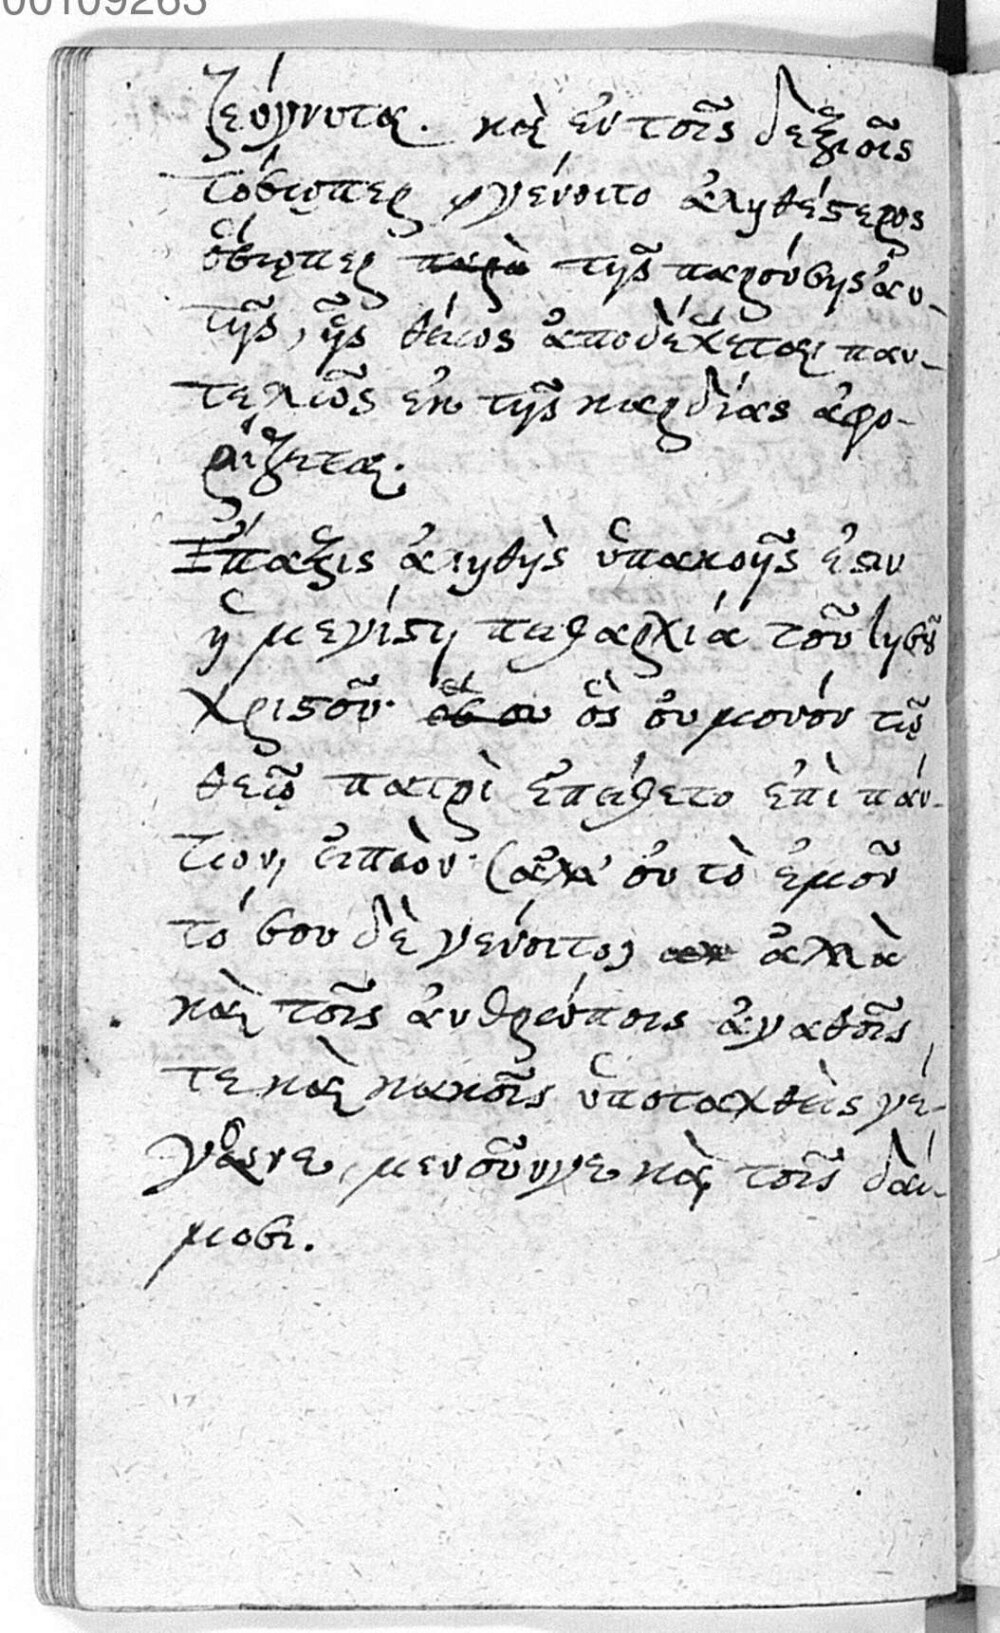 00109263
ζεύγνυται. καὶ ἐν τοῖς δεξιοῖς
τόσῳπερ γένοιτο ἀληθέστερος
ὅσῳπερ παρὰ τῆς παρούσης ἀυ-
τῆς, ἧς θεῖος ἀποδέχεται παν-
τελῶς ἐκ τῆς καρδίας ἀφο-
ρίζεται.
ἀληθὴς ὑπακοῆς ἐστιν
ἡ μεγίστη πειθαρχία τοῦ Ἰησοῦ
Χριστοῦ· ὃς οὐ μονόν τῷ
θεῷ πατρὶ ἐπείθετο ἐπὶ πάν-
των, εἰπὼν· (ἀλλ' οὐ τὸ ἐμοῦ
τό σου δὲ γένοιτο) ἀλλὰ
καὶ τοῖς ἀνθρώποις ἀγαθοῖς
τε καὶ κακοῖς ὑποταχθεὶς γέ-
γονε, μενοῦνγε καὶ τοῖς δαί-
μοσι.